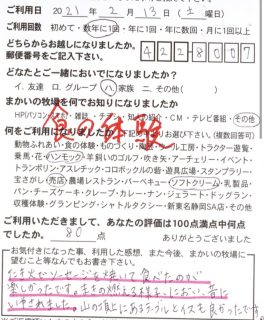 ご利用日 2021年 2月 13日(土 曜日)
ご利用回数 初めて・数年に1回・年に1回・年に数回・月に1回以上
どちらからお越しになりましたか。
郵便番号をご記入下さい。 422-8007
どなたとご一緒においでになりましたか?
イ. 友達 ロ. グループ ハ. 家族 ニ. その他( )
まかいの牧場を何でお知りになりましたか。
HP(パソコン 雑誌 の紹介・CM・テレビ番組・その他
食の体験
何をご利用になりましたか? 下記 お選び下さい。(複数回答可)
動物ふれあい・食の体験・ものづくり・陶 ・ミルク工房・トラクター遊覧・
乗馬・花・ハンモック・羊飼いのゴルフ・吹き矢・アーチェリー・イベント・
トランポリン・アスレチック・コロボックルの砦・遊具広場・スタンプラリー・
宝さがし・売店・農場レストラン・バーベキュー・ソフトクリーム・乳製品・
パン・チーズケーキ・クレープ・カレー・ナン・ジェラート・ドッグラン・
収穫体験・グランピング・シャトルタクシー・新東名静岡SA店・その他
ご利用いただきまして、あなたの評価は100点満点中何点
でしたか。 80 点 ありがとうございました
お気付きになった事、利用された感想、また今後、まかいの牧場に
望むこと等なんでもお書き下さい。
たき火でソーセージを焼いて食べたのが
楽しかったです。まきの燃える様子、におい、音に
いやされました。山の頂にあるテーブルとイスも良かったです